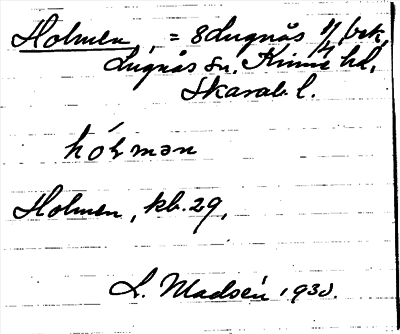 Holmen, = 8 Lugnås 1/4, bek,
Lugnås sn. Kinne hd,
Skarab. l.
hólmən
Holmen, kb. 29,
L. Madsén 1930.